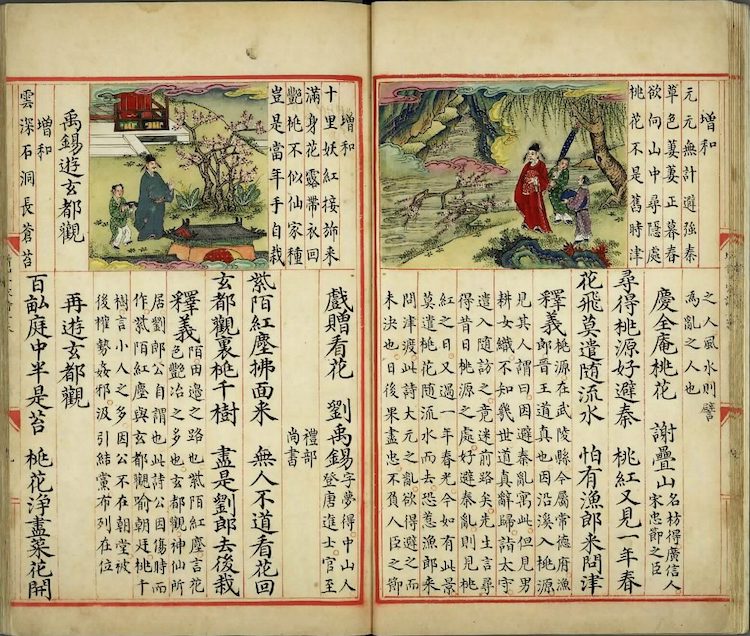 增和
元元無計避強秦
草色萋萋正暮春
欲向山中尋隱處
桃花不是舊時津
之人風水則譬
為亂之人也
慶全庵桃花 謝疊山 名枋得廣信人
宋忠節之臣
尋得桃源好避秦 桃紅又見一年春
花飛莫遣隨流水 怕有漁郎來問津
釋義 桃源在武陵縣今屬常德府漁
郎晉王道真也因沿溪入桃源
見其人謂曰因避秦亂寓此但見男
耕女織不知幾世道真辭歸詣太守
遣人隨訪之竟迷前路矣先生言尋
得昔日桃源之處好避秦亂則見桃
紅之日又過一年春光今如有此景
莫遣桃花隨流水而去恐惹漁郎來
問津渡此詩大元之亂欲得避之而
未決也日後果盡忠不負人臣之節
增和
十里妖紅接來
滿身花露帶衣回
艷桃不似仙家種
豈是當年手自栽
戲贈看花 劉禹錫 字夢得中山人
登唐進士官至
禮部
尚書
紫陌紅塵拂面來 無人不道看花回
玄都觀裏桃千樹 盡是劉郎去後栽
釋義 陌田邊之路也紫陌紅塵言花
色艷冶之多也玄都觀神仙所
居劉郎公自謂也此詩公因傷時而
作紫陌紅塵與玄都觀喻朝廷桃千
樹言小人之多因公不在朝堂被
後權勢姦邪汲引結黨布列在位
禹錫遊玄都觀
增和
雲深石洞長蒼苔
再遊玄都觀
百畝庭中半是苔 桃花淨盡菜花開